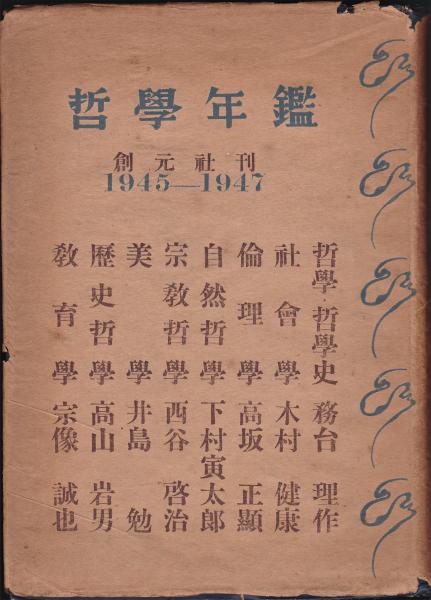 哲學年鑑
創元社刊
1945—1947
哲學·哲學史 務台 理作
社會學 木村 健康
倫理學 高坂 正顯
自然哲學 下村寅太郎
宗敎哲學 西谷 啓治
美學 井島 勉
歷史哲學 高山 岩男
敎育學 宗像 誠也